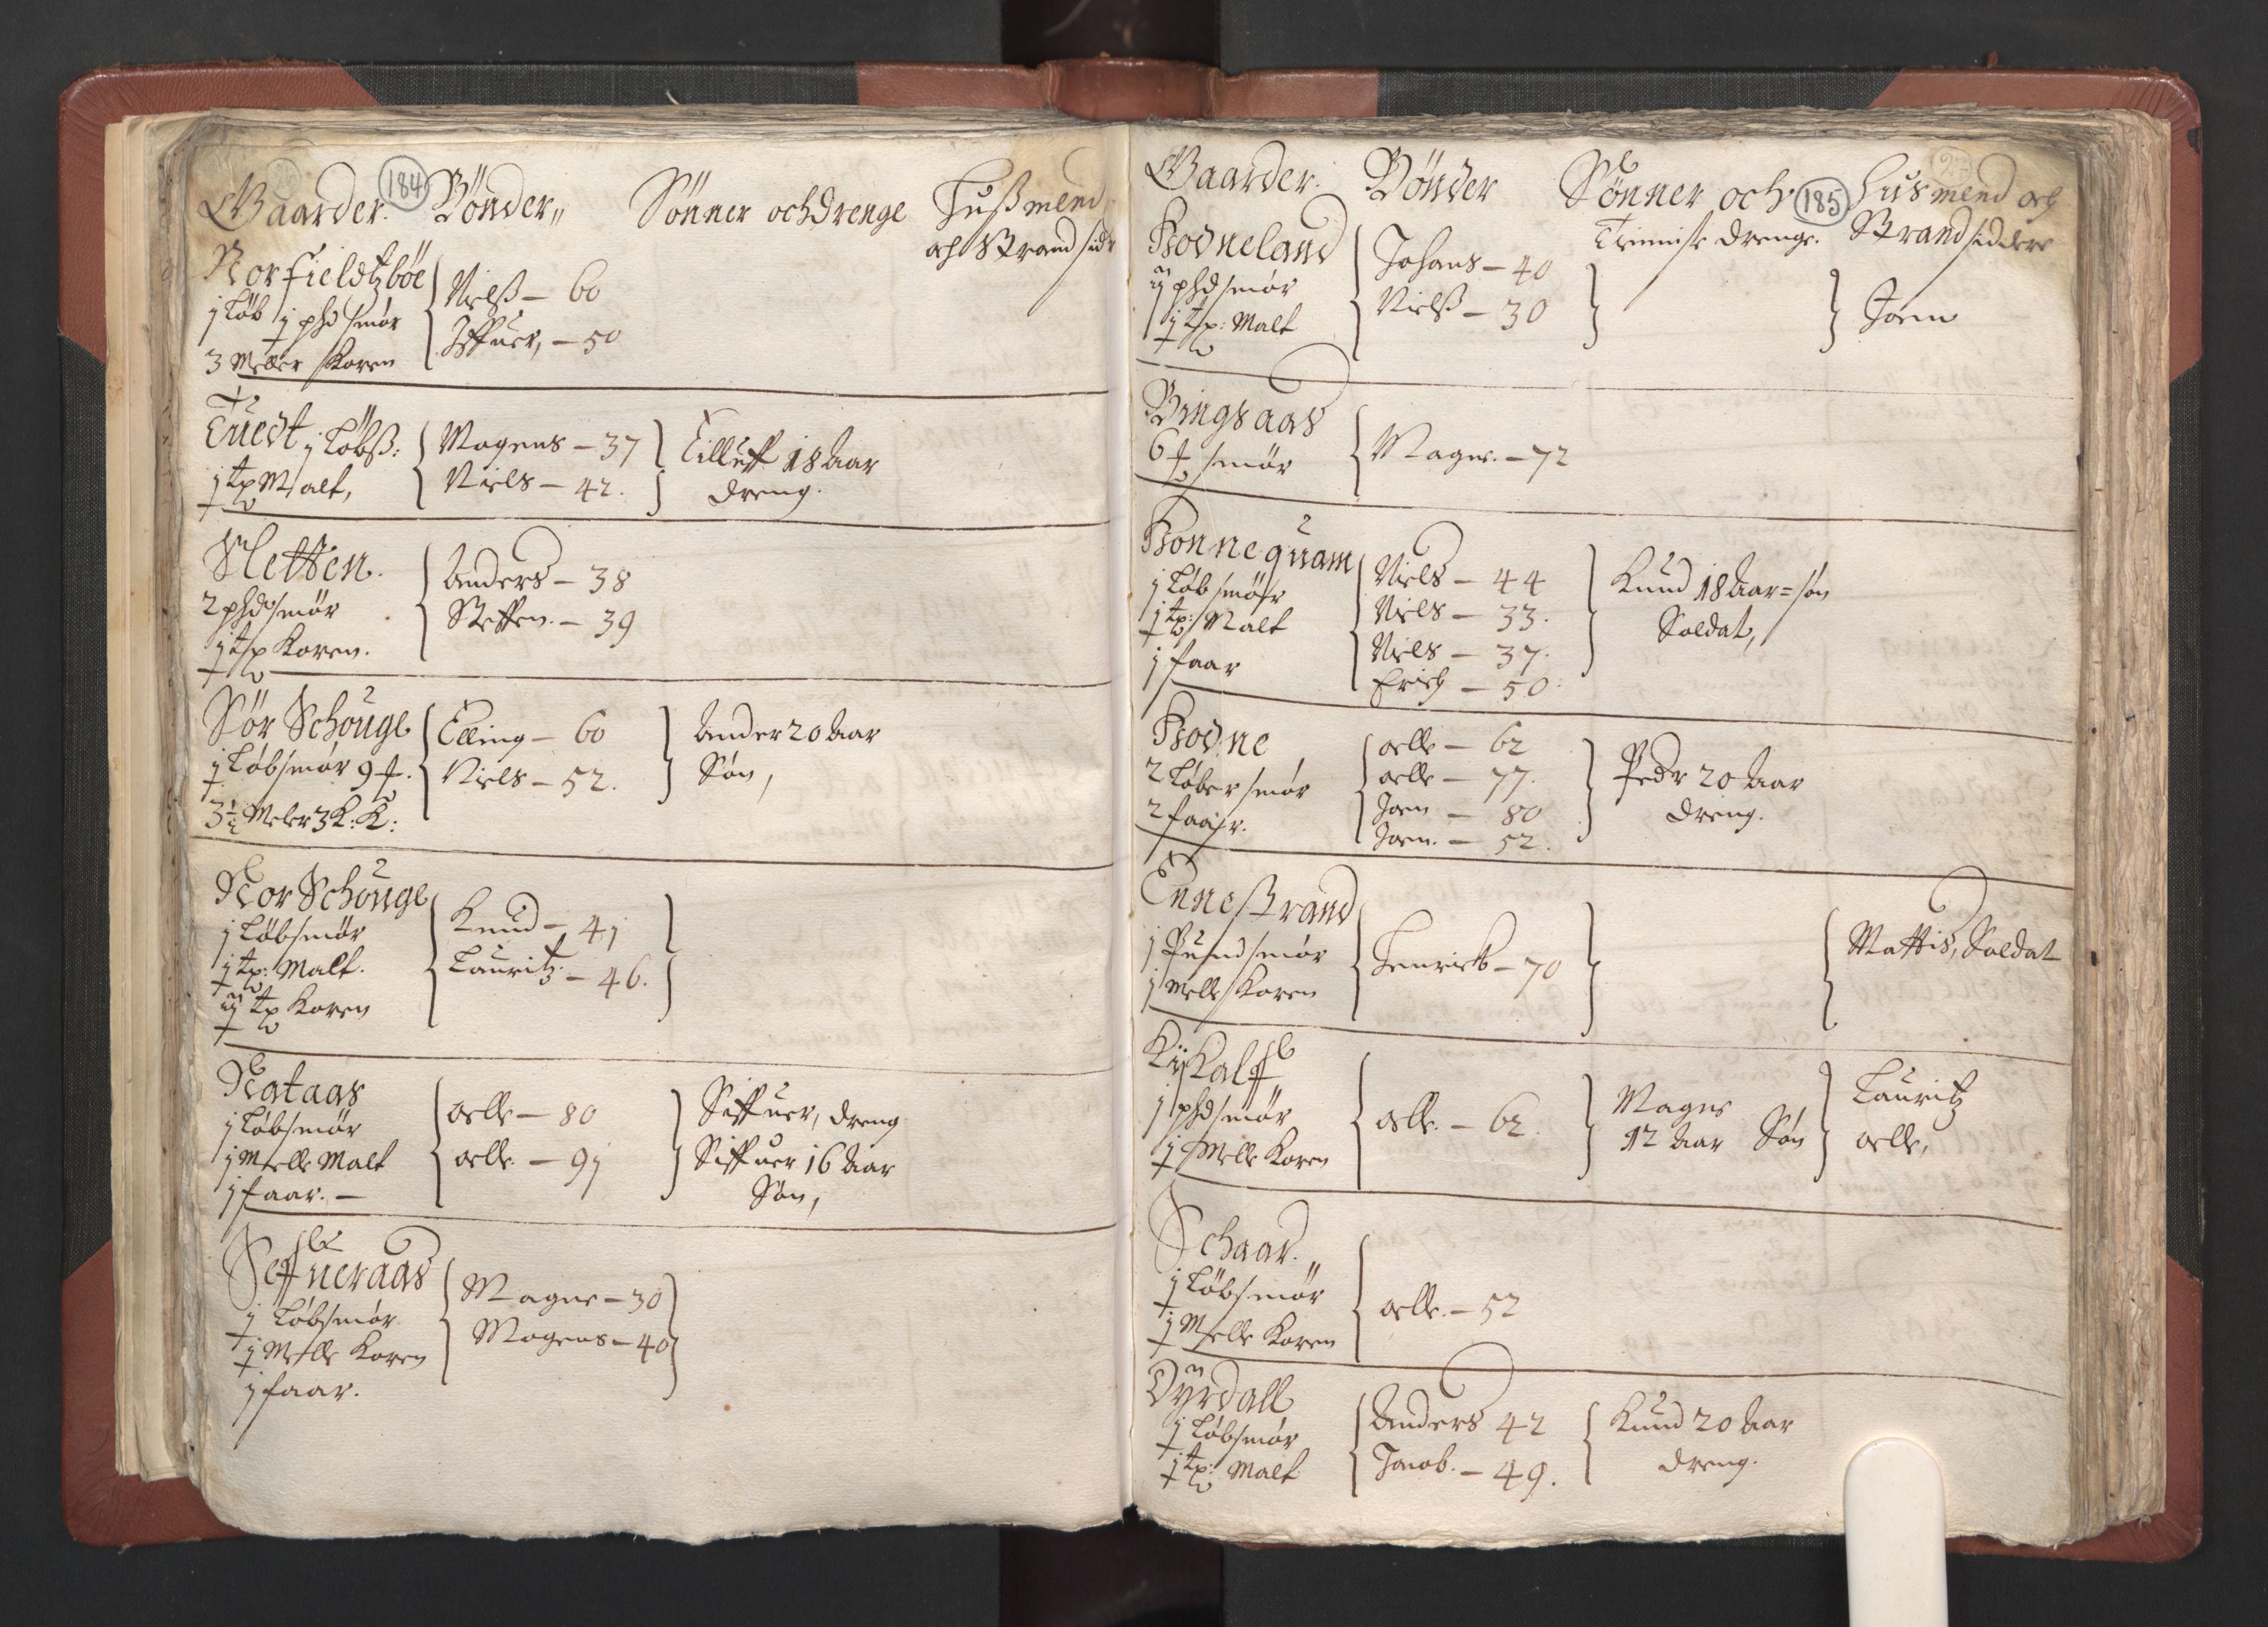 184
Gaarder. Bönder„ Sönner och Drenge Hußmend
och Strandsidr
Norfieldtzböe
j Löb j phd smör
3 Meller Koren
Nielß – 60
Iffuer, – 50
Tuedt j Löbß:
j tp Malt,
Mogens – 37
Niels – 42.
Eilluff 18 Aar
dreng.
Sletten.
2 phd smör
j tp Koren.
Anders – 38
Steffen. – 39
Sör Schouge
j Löbsmör 9
3½ Meler 3 K: K:
Elling – 60
Niels – 52.
Ander 20 Aar
Sön,
Nor Schouge
j Löbsmör
j tp: Malt.
ij tp Koren
Knud – 41
Lauritz – 46.
Rataas
j Löbsmör
j Melle Malt
j faar. –
oelle – 80
oelle – 91
Siffuer, dreng
Siffuer 16 Aar
Sön,
Seffueraas
j Löbsmör
j Melle Koren
j faar.
Magne – 30
Mogens – 40
185
Gaarder. Bönder Sönner och Husmend och
Thieniste drenge. Strandsiddere
Hovneland
ij phd smör
j tp: Malt
Johans – 40
Nielß – 30
Joen
Bingsaas
6 smör
Magne. – 72
Honnequam
j Löb smör
j tp: Malt
j faar
Niels – 44
Niels – 33.
Niels – 37.
Erich – 50
Knud 18 Aar = sön
Soldat,
Hovne
2 Löber smör
2 faar.
oelle – 62
oelle – 77.
Joen – 80
Joen. – 52.
Peder 20 Aar
dreng.
Ennestrand
j Pund smör
j Melle Koren
Henrick – 70
Mattis, Soldat
Kijkalff
j phd smör
j Melle Koren
oelle. – 62.
Magne
12 Aar Sön
Lauritz
oelle,
Schaar.
j Löbsmör
j Melle Koren
oelle. – 52
Dyrdall
j Löbsmör
j tp: Malt
Anders 42
Jacob. – 49.
Knud 20 Aar
dreng.